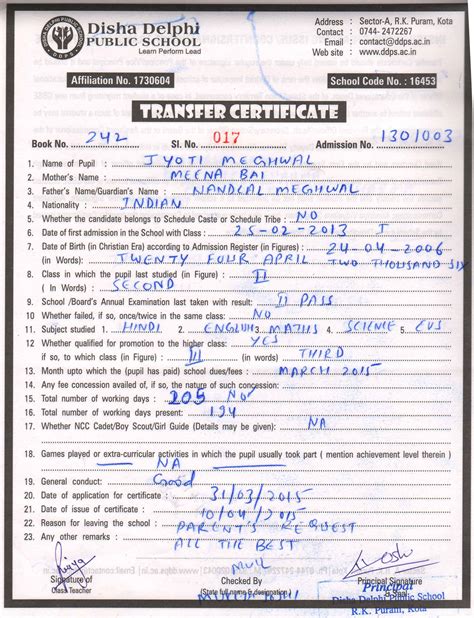 Disha Delphi
PUBLIC SCHOOL
Learn Perform Lead
Address : Sector-A, R.K. Puram, Kota
Contact : 0744-2472267
Email : contact@ddps.ac.in
Web site : www.ddps.ac.in
Affiliation No. 1730604 School Code No. : 16453
TRANSFER CERTIFICATE
Book No. 242 Sl. No. 017 Admission No. 1301003
1. Name of Pupil : JYOTI MEGHWAL
2. Mother's Name : MEENA BAI
3. Father's Name/Guardian's Name : NANDLAL MEGHWAL
4. Nationality : INDIAN
5. Whether the candidate belongs to Schedule Caste or Schedule Tribe : NO
6. Date of first admission in the School with Class : 25-02-2013 I
7. Date of Birth (in Christian Era) according to Admission Register (in Figures) : 24-04-2006
(in Words) : TWENTY FOUR APRIL TWO THOUSAND SIX
8. Class in which the pupil last studied (in Figure) : II
( In Words) : SECOND
9. School /Board's Annual Examination last taken with result: II PASS
10 Whether failed, if so, once/twice in the same class: NO
11. Subject studied 1. HINDI 2. ENGLISH 3. MATHS 4. SCIENCE 5. EVS
12 Whether qualified for promotion to the higher class: YES
if so, to which class (in Figure) : III (in words) THIRD
13. Month upto which the (pupil has paid) school dues/fees : MARCH 2015
14. Any fee concession availed of, if so, the nature of such concession:
15. Total number of working days : 205 NO
16. Total number of working days present: 194
17. Whether NCC Cadet/Boy Scout/Girl Guide (Details may be given): NA
18. Games played or extra-curricular activities in which the pupil usually took part ( mention achievement level therein )
NA
19. General conduct: Good
20. Date of application for certificate : 31/03/2015
21. Date of issue of certificate : 10/04/2015
22. Reason for leaving the school : PARENT'S REQUEST
23. Any other remarks : ALL THE BEST
Signature of
Class Teacher
Checked by
(State full name & designation)
Principal Signature
& Seal
Principal
Disha Delphi Public School
R.K. Puram, Kota